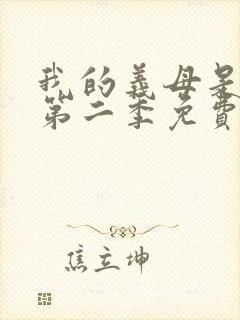 我的義母是
第二季免費
焦立坤